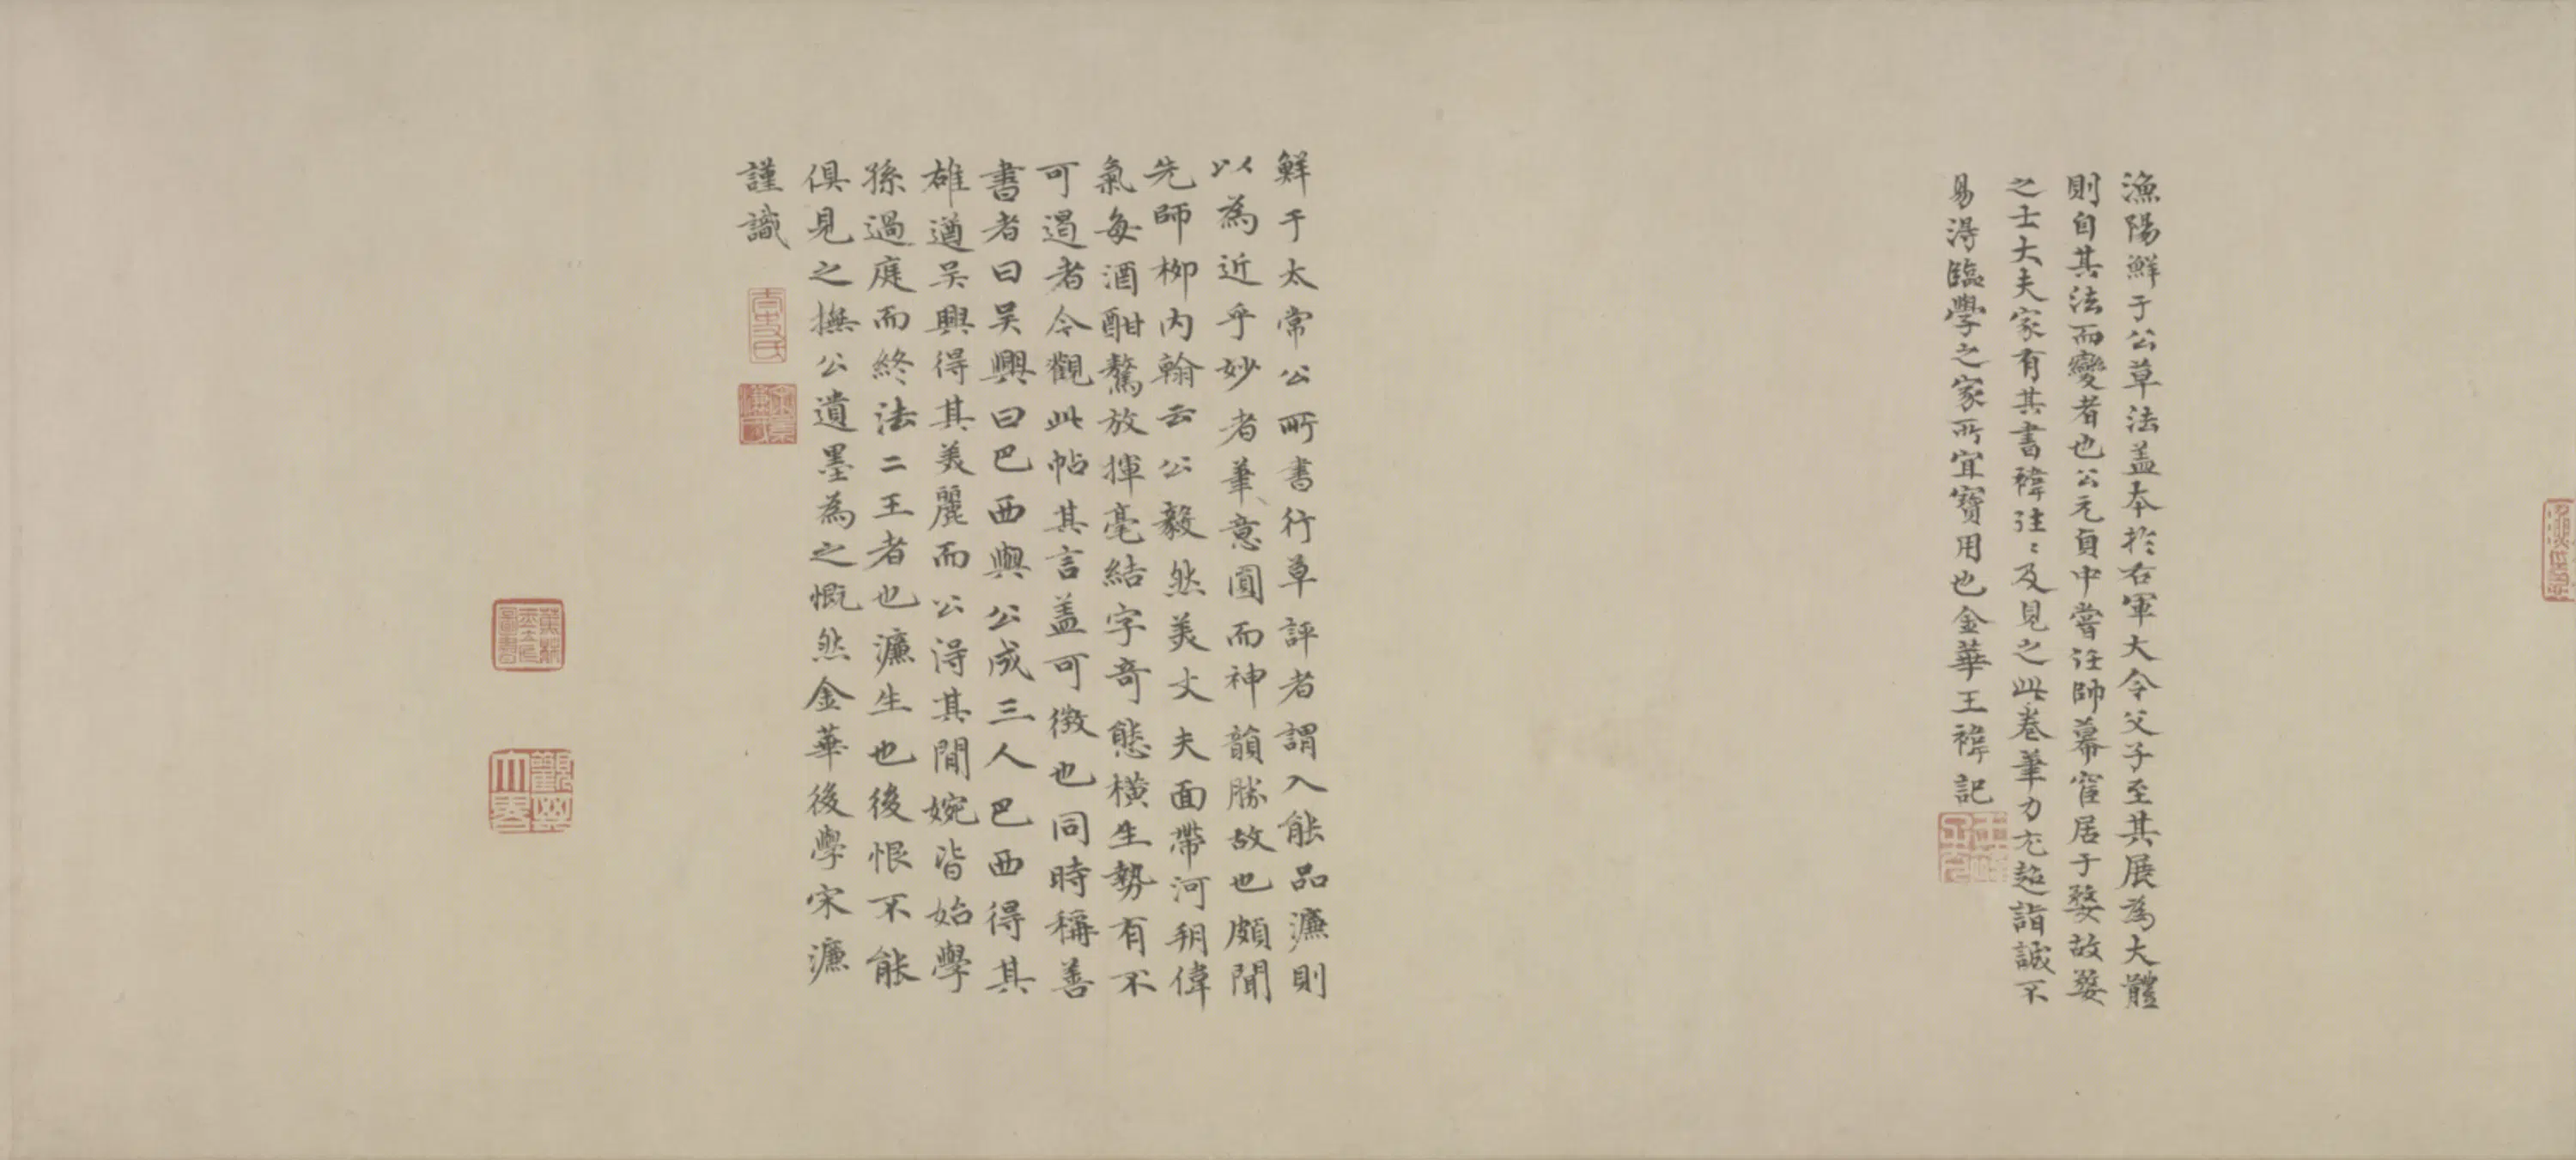 漁陽鮮于公草法盖本於右軍大令父子至其展為大體
則自其法而變者也公元貞中嘗任帥幕宦居于婺故婺
之士大夫家有其書褘往〻及見之此卷筆力尤超詣誠不
易得臨學之家所宜寶用也金華王褘記
鮮于太常公所書行草評者謂入能品濂則
以為近乎妙者筆意圓而神韻勝故也頗聞
先師栁内翰云公毅然美丈夫面帶河朔偉
氣每酒酣驁放揮毫結字奇態橫生勢有不
可遏者今觀此帖其言盖可徴也同時稱善
書者曰吴興曰巴西與公成三人巴西得其
雄遒吴興得其美麗而公得其閒婉皆始學
孫過庭而終法二王者也濂生也後恨不能
俱見之撫公遺墨為之慨然金華後學宋濂
謹識